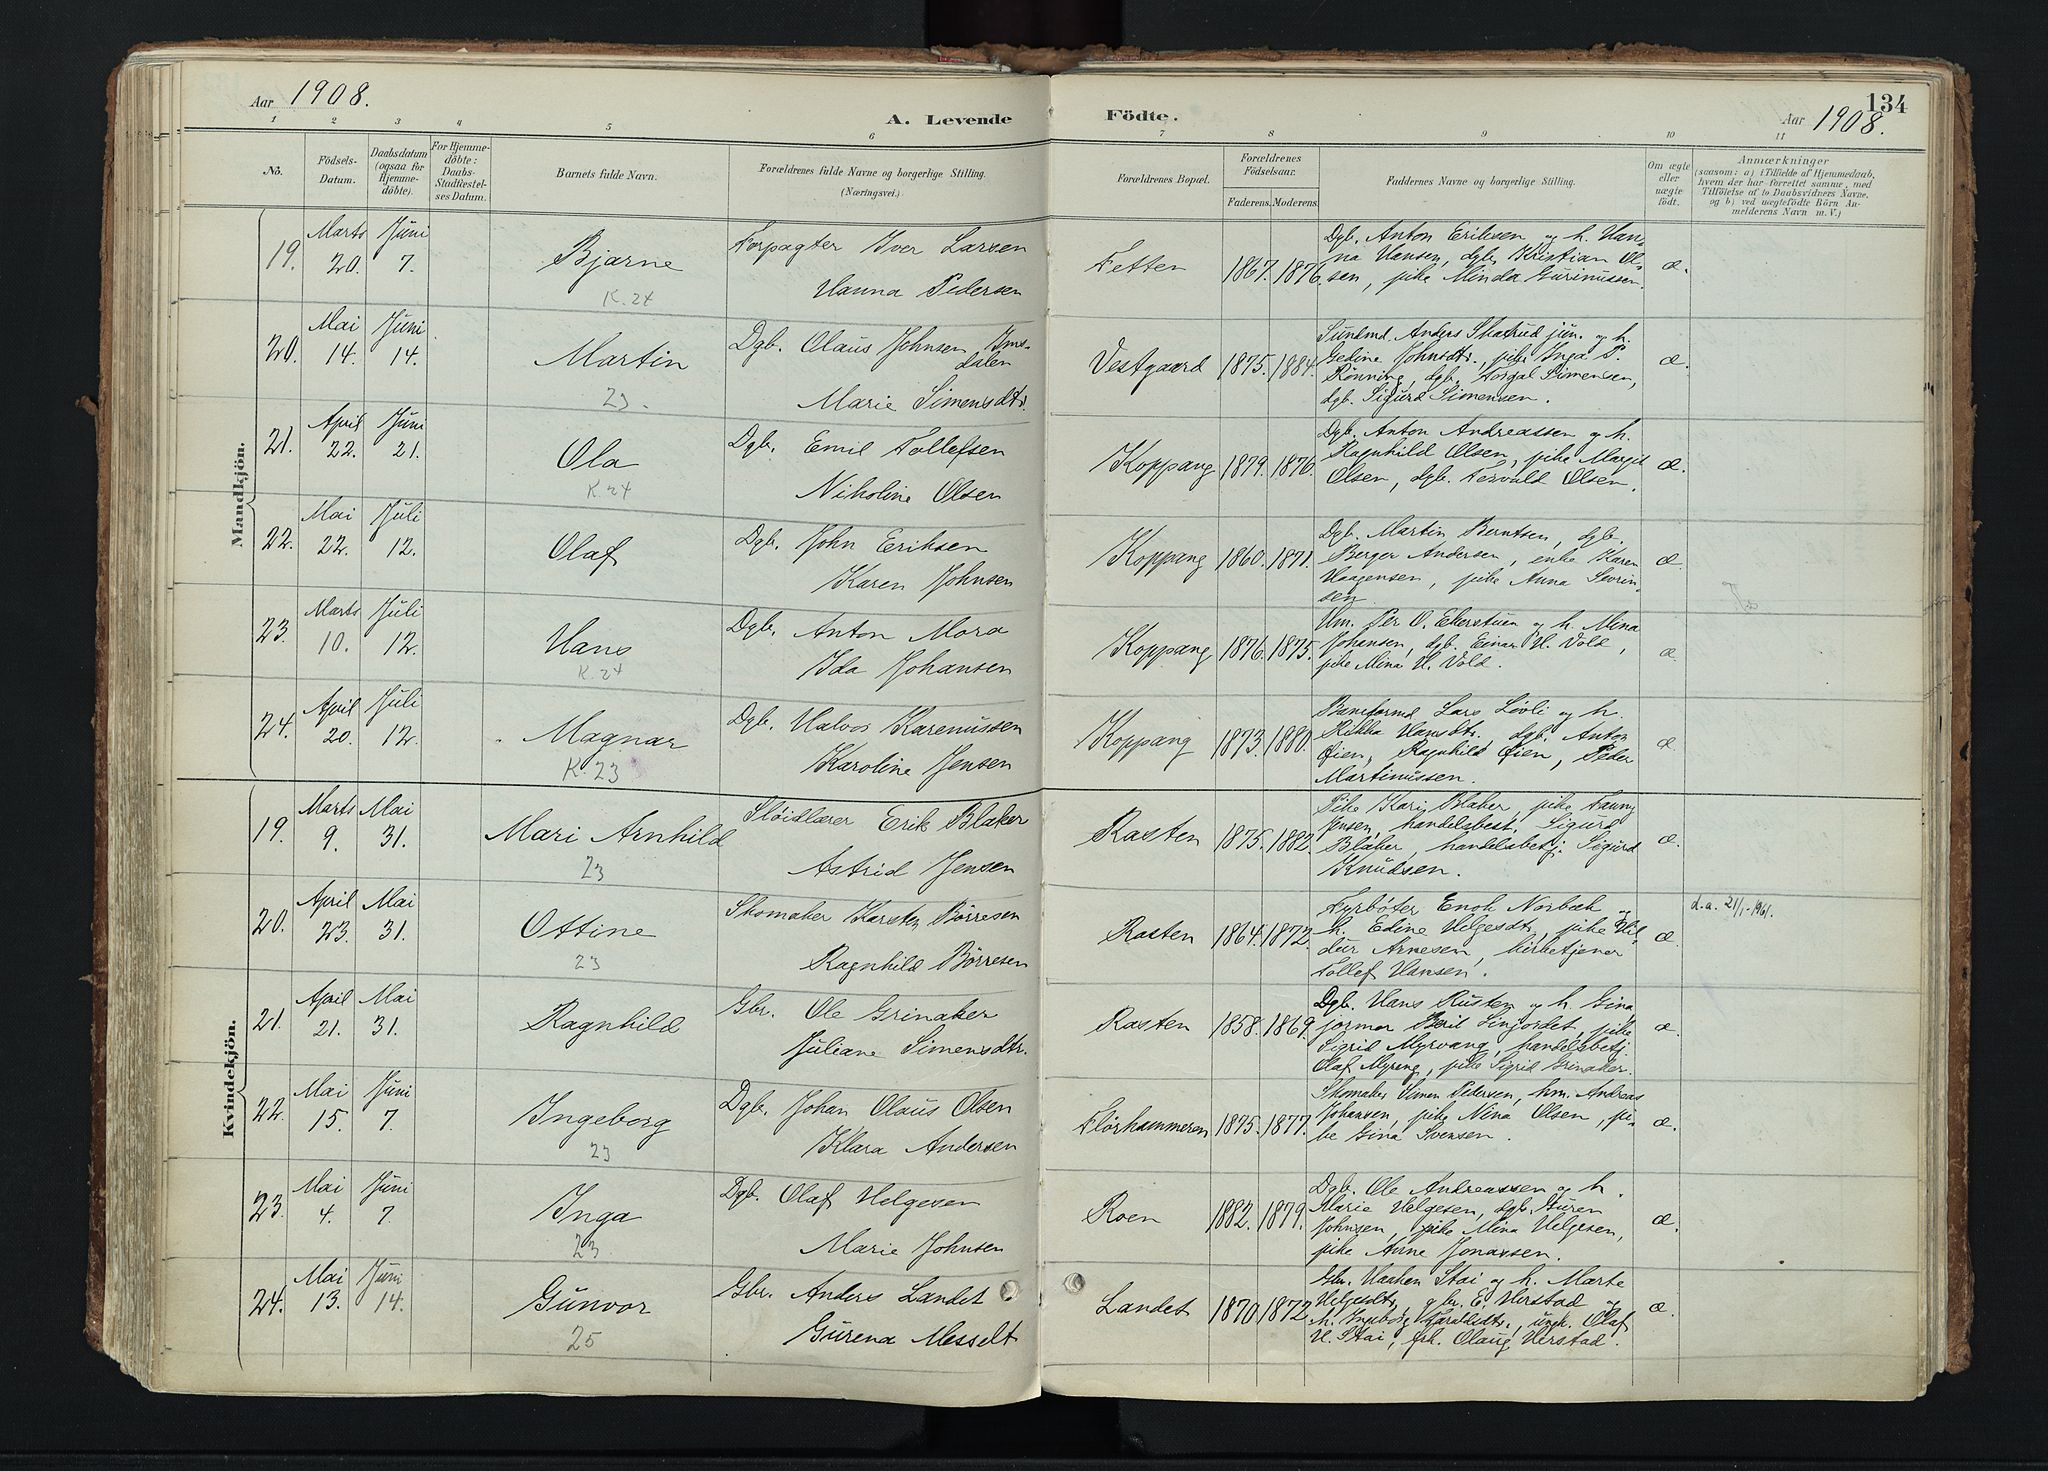 Aar 1908.
A. Levende
Födte.
134
Aar 1908.
1 2 3 4 5 6 7 8 9 10 11
No.
Födsels-
Datum.
Daabsdatum
(ogsaa for
Hjemme-
döbte).
For Hjemme-
döbte:
Daabs-
Stadfæstel-
ses Datum.
Barnets fulde Navn.
Forældrenes fulde Navne og borgerlige Stilling.
(Næringsvei.)
Forældrenes Bopæl.
Forældrenes
Födselsaar.
Faderens. Moderens.
Faddernes Navne og borgerlige Stilling.
Om ægte
eller
uægte
födt.
Anmærkninger
(saasom: a) i Tilfælde af Hjemmedaab,
hvem der har forrettet samme, med
Tilföielse af to Daabsvidners Navne,
og b) ved uægtefödte Börn An-
melderens Navn m. V.)
Mandkjön.
19. Marts 20. Juni 7.
Bjarne
K. 24
Forpagter Iver Larsen
Hanna Pedersen
Fetten 1867. 1876.
Dgb. Anton Eriksen og h. Han-
na Hansen, dgb. Kristian Ol-
sen, pike Minda Gurinussen.
æ.
20. Mai 14. Juni 14.
Martin
23.
Dgb. Olaus Johnsen Ims-
dalen
Marie Simensdtr.
Vestgaard 1875. 1884.
Sunlmd. Anders Skatrud jun. og h.
Gedine Johnsdtr., pike Inga P.
Rönning, dgb. Torgal Simensen,
dgb. Sigurd Simensen.
æ.
21. April 22. Juni 21.
Ola
K. 24
Dgb. Emil Tollefsen
Nikoline Olsen
Koppang 1879. 1876.
Dgb. Anton Andreassen og h.
Ragnhild Olsen, pike Margit
Olsen, dgb. Torvald Olsen.
æ.
22. Mai 22. Juli 12.
Olaf
Dgb. John Eriksen
Karen Johnsen
Koppang 1860. 1871.
Dgb. Martin Berntsen, dgb.
Berger Andersen, enke Karen
Haagensen, pike Anna Sevrin-
sen
æ.
23. Marts 10. Juli 12.
Hans
K. 24
Dgb. Anton Mora
Ida Johansen
Koppang 1876. 1875.
Hm. Per O. Ekerstuen og h. Mina
Johansen, dgb. Einar H. Vold,
pike Mina H. Vold.
æ.
24. April 20. Juli 12.
Magnar
K. 23
Dgb. Halvor Karenussen
Karoline Jensen
Koppang 1873. 1880.
Baneformd Lars Lövli og h.
Rikka Hansdtr., dgb. Anton
Öien, Ragnhild Öien, Peder
Martinussen.
æ.
Kvindekjön.
19. Marts 9. Mai 31.
Mari Arnhild
23
Slöidlærer Erik Blaker
Astrid Jensen
Rasten 1875. 1882.
Pike Kari Blaker, pike Fanny
Jensen, handelsbest. Sigurd
Blaker, handelsbetj. Sigurd
Knudsen.
æ.
20. April 23. Mai 31.
Ottine
23
Skomaker Karsten Börresen
Ragnhild Börresen
Rasten 1864. 1872.
Fyrböter Enok Norbæk og
h. Edine Helgesdtr, pike Hil-
dur Arnesen, kirketjener
Tollef Hansen.
æ.
d.a. 21/1-1961.
21. April 21. Mai 31.
Ragnhild
Gbr. Ole Grinaker
Juliane Simensdtr.
Rasten 1858. 1869.
Dgb. Hans Rusten og h. Gina,
jormor Beril Sinjordet, pike
Sigrid Myrvang, handelsbetj.
Olaf Myreng, pike Sigrid Grinaker.
æ.
22. Mai 15. Juni 7.
Ingeborg
23
Dgb. Johan Olaus Olsen
Klara Andersen
Flörhammeren 1875. 1877.
Skomaker Simen Pedersen, hm. Andreas
Johansen, pike Nina Olsen, pi-
ke Gina Svensen.
æ.
23. Mai 4. Juni 7.
Inga
23
Dgb. Olaf Helgesen
Marie Johnsen
Roen 1882. 1879.
Dgb. Ole Andreassen og h.
Marie Helgesen, dgb. Guren
Johnsen, pike Mina Helgesen,
pike Anne Jonassen.
æ.
24. Mai 13. Juni 14.
Gunvor
25
Gbr. Anders Landet
Gurena Messelt
Landet 1870. 1872
Gbr. Haaken Stai og h. Marte
Helgesdtr, gbr. E. Harstad og
h. Ingeborg Haraldsdtr., ungk. Olaf
H. Stai, pk. Olaug Harstad.
æ.